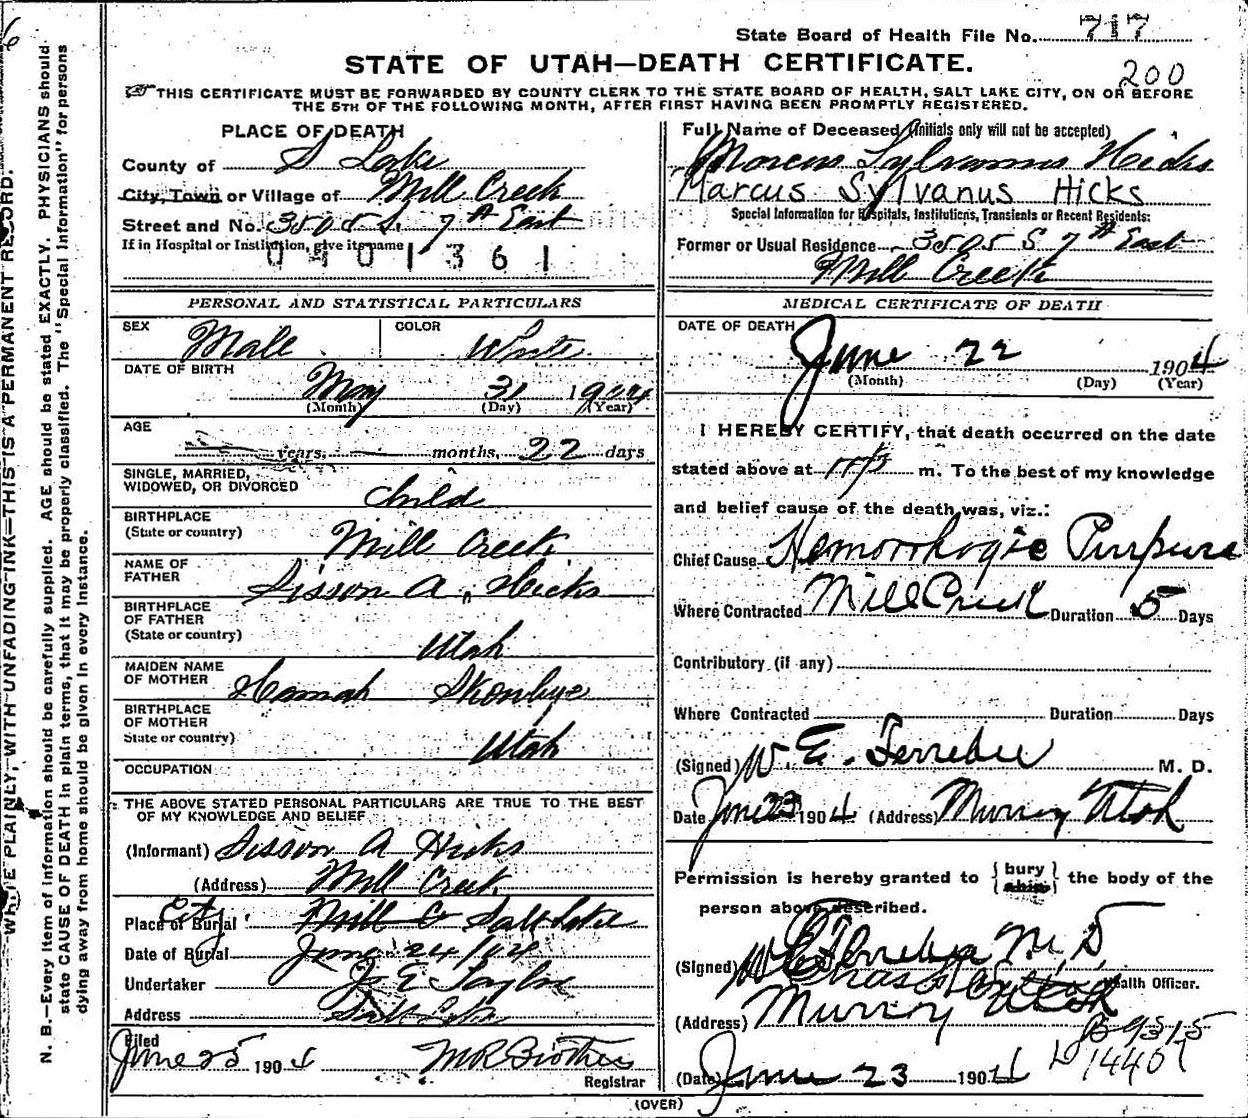 6
State Board of Health File No. 717
STATE OF UTAH—DEATH CERTIFICATE.
200
THIS CERTIFICATE MUST BE FORWARDED BY COUNTY CLERK TO THE STATE BOARD OF HEALTH, SALT LAKE CITY, ON OR BEFORE
THE 5TH OF THE FOLLOWING MONTH, AFTER FIRST HAVING BEEN PROMPTLY REGISTERED.
PLACE OF DEATH
County of S Lake
City, Town or Village of Mill Creek
Street and No. 3505 S. 7th East
If in Hospital or Institution, give its name
0401361
Full Name of Deceased (Initials only will not be accepted)
Marcus Sylvanus Hicks
Marcus Sylvanus Hicks
Special Information for Hospitals, Institutions, Transients or Recent Residents:
Former or Usual Residence 3505 S 7th East
Mill Creek
PERSONAL AND STATISTICAL PARTICULARS
SEX Male
COLOR White
DATE OF BIRTH
May 31 1904
(Month) (Day) (Year)
AGE
years, months, 22 days
SINGLE, MARRIED,
WIDOWED, OR DIVORCED Child
BIRTHPLACE
(State or country) Mill Creek
NAME OF
FATHER Sisson A. Hicks
BIRTHPLACE
OF FATHER
(State or country) Utah
MAIDEN NAME
OF MOTHER Hannah
BIRTHPLACE
OF MOTHER
State or country) Utah
OCCUPATION
THE ABOVE STATED PERSONAL PARTICULARS ARE TRUE TO THE BEST
OF MY KNOWLEDGE AND BELIEF
(Informant) Sisson A Hicks
(Address) Mill Creek
Place of Burial City Mill C Salt Lake
Date of Burial June 24/04
Undertaker J E Taylor
Address Salt Lake
Filed
June 25 1904
Registrar
MEDICAL CERTIFICATE OF DEATH
DATE OF DEATH
June 22 1904
(Month) (Day) (Year)
I HEREBY CERTIFY, that death occurred on the date
stated above at m. To the best of my knowledge
and belief cause of the death was, viz.:
Chief Cause Hemorrhagic Purpura
Where Contracted Mill Creek Duration 5 Days
Contributory (if any)
Where Contracted Duration Days
(Signed) W. E. Ferrebee M. D.
Date June 23 1904 (Address) Murray Utah
Permission is hereby granted to {bury ship} the body of the
person above described.
(Signed) W E Ferrebee M. D
Health Officer.
(Address) Murray Utah
B 9315
14401
(Date) June 23 1904
(OVER)
N. B.—Every item of information should be carefully supplied. AGE should be stated EXACTLY. PHYSICIANS should
state CAUSE OF DEATH in plain terms, that it may be properly classified. The "Special Information" for persons
dying away from home should be given in every instance.
WRITE PLAINLY, WITH UNFADING INK—THIS IS A PERMANENT RECORD.